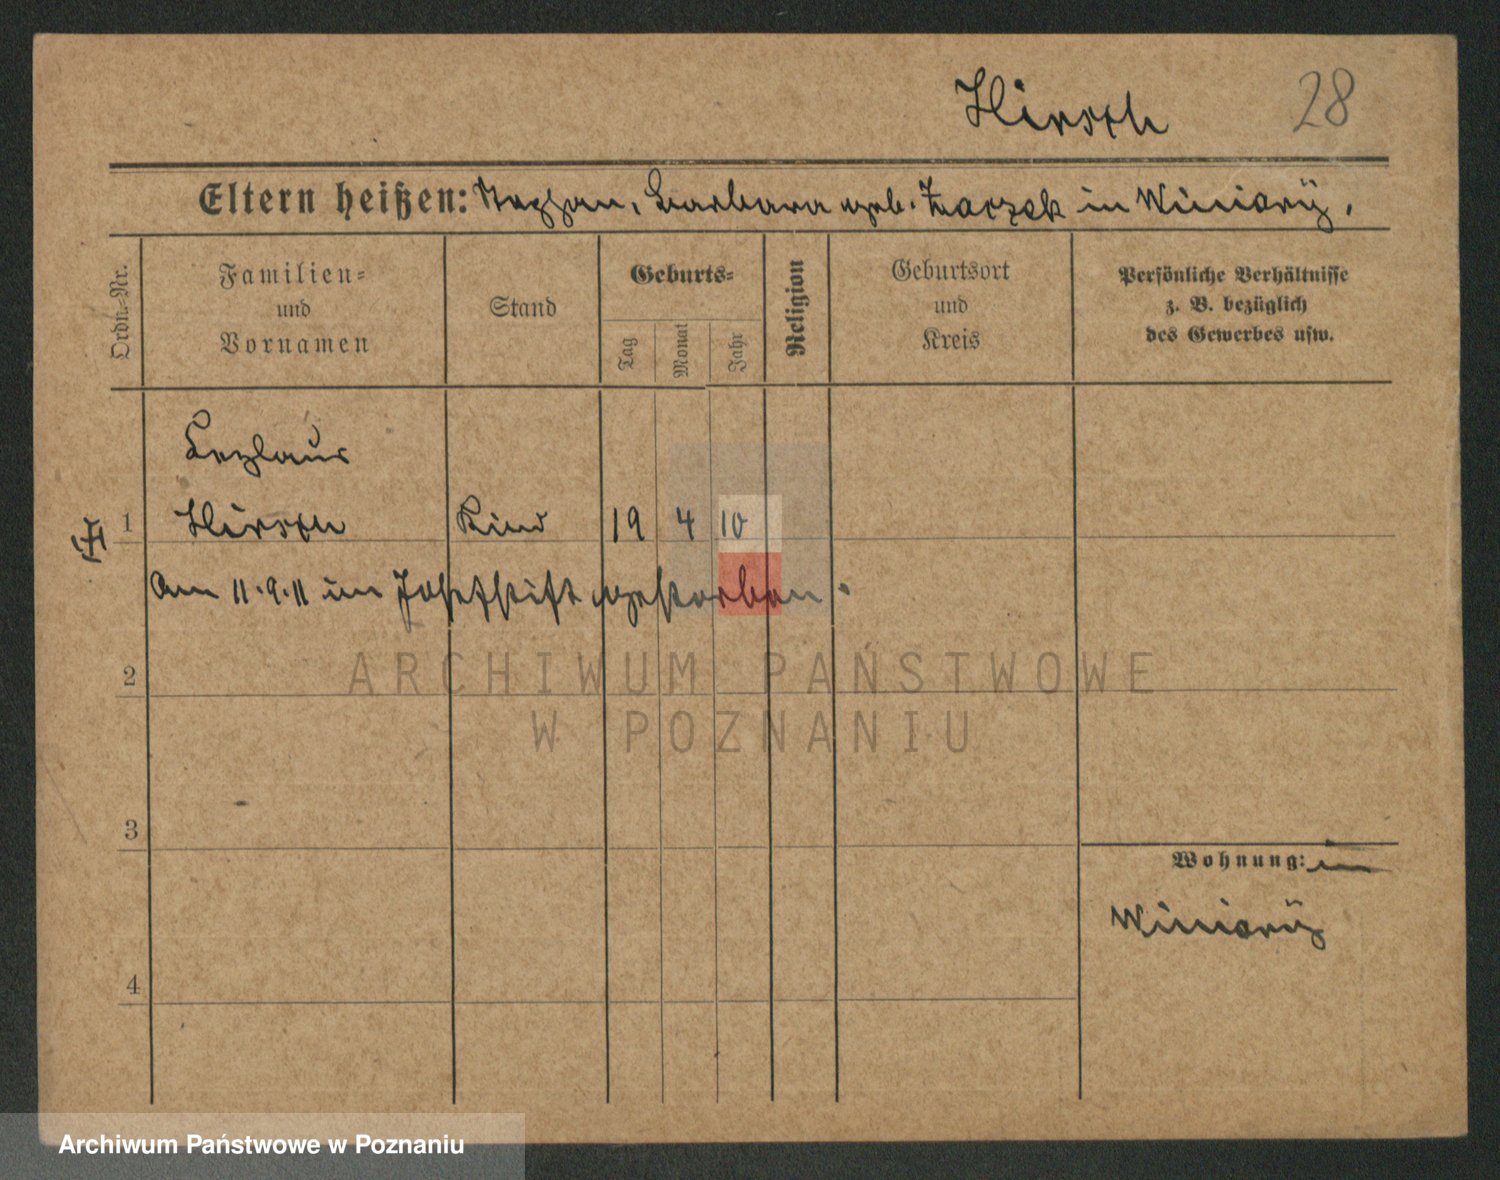 Hirsch 28
Eltern heißen: Stephan, Barbara geb. in Winiary.
Ordn.-Nr.
Familien-
und
Vornamen
Stand
Geburts-
Tag
Monat
Jahr
Religion
Geburtsort
und
Kreis
Persönliche Verhältnisse
z. B. bezüglich
des Gewerbes usw.
1 Hirsch Kind 19 4 10
Am 11.9.11 im Josefstift gestorben.
2
3
4
Wohnung: in
Winiary
ARCHIWUM PAŃSTWOWE
W POZNANIU
Archiwum Państwowe w Poznaniu